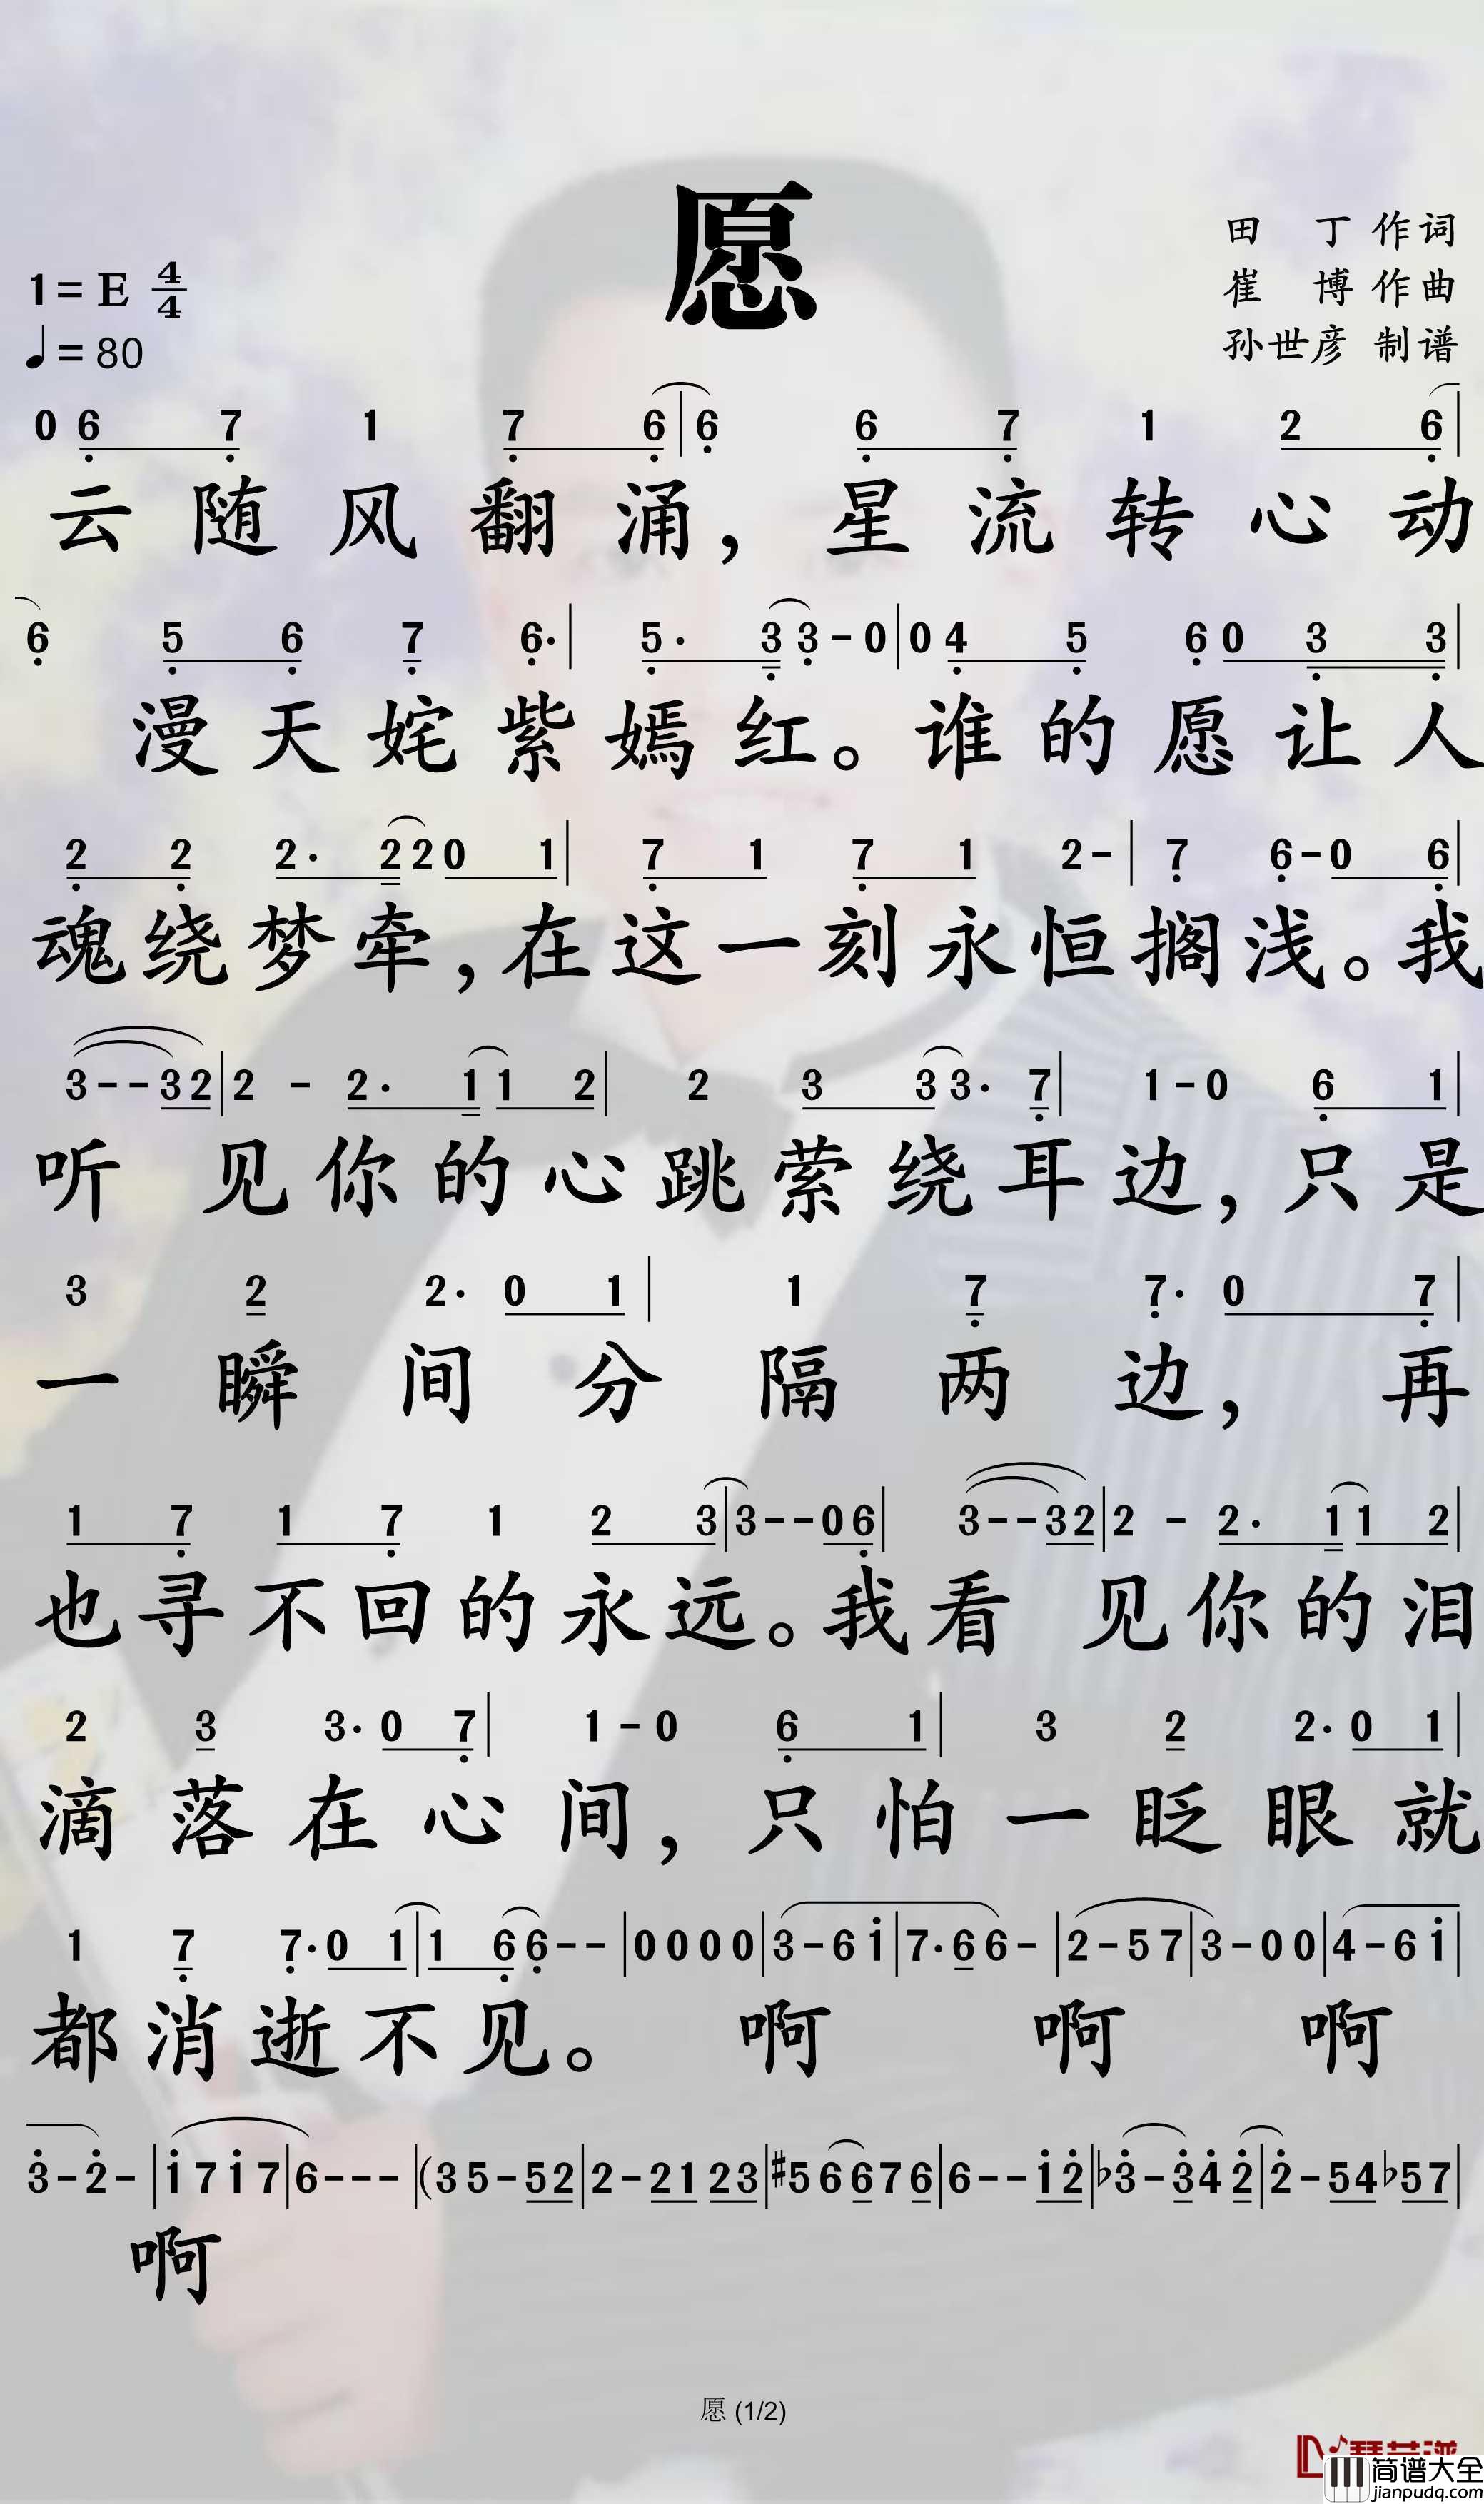 愿
田 丁 作词
崔 博 作曲
孙世彦 制谱
1=E 4/4
♩=80
0 6 7 1 7 6|6 6 7 1 2 6|
云随风翻涌，星流转心动
6 5 6 7 6·|5· 3 3-0|0 4 5 6 0 3 3|
漫天姹紫嫣红。谁的愿让人
2 2 2· 2 2 0 1|7 1 7 1 2-|7 6-0 6|
魂绕梦牵，在这一刻永恒搁浅。我
3--3 2|2 - 2· 1 1 2|2 3 3 3· 7|1-0 6 1|
听见你的心跳萦绕耳边，只是
3 2 2· 0 1|1 7 7· 0 7|
一瞬间分隔两边，再
1 7 1 7 1 2 3|3--0 6|3--3 2|2 - 2· 1 1 2|
也寻不回的永远。我看见你的泪
2 3 3· 0 7|1-0 6 1|3 2 2· 0 1|
滴落在心间，只怕一眨眼就
1 7 7· 0 1|1 6 6--|0 0 0 0|3-6 1|7· 6 6-|2-5 7|3-0 0|4-6 1|
都消逝不见。啊 啊 啊
3-2-|1 7 1 7|6---|(3 5-5 2|2-2 1 2 3|#5 6 6 7 6|6--1 2|b3-3 4 2|2-5 4 b5 7|
啊
愿 (1/2)
简谱大全
jianpudq.com